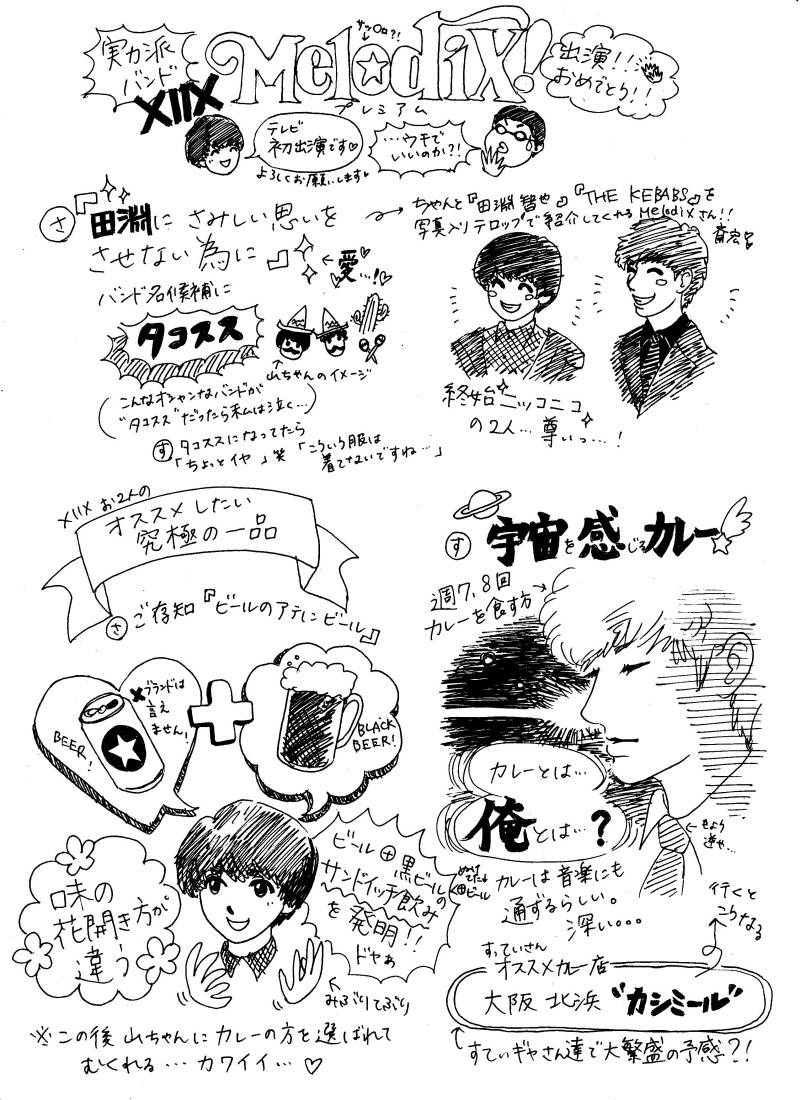 実力派
バンド
XIIX
サッ〇ロ?!
MelodiX!
プレミアム
出演!!
おめでとり!!
テレビ
初出演です♡
よろしくお願いします♡
…ウチで
いいのか?!
さ 『田淵にさみしい思いを
させない為に』
←愛…!
バンド名候補に
タコスス
↑山ちゃんのイメージ
こんなオシャンなバンドが
“タコスス”だったら私は泣く…
す タコススになってたら
「ちょっとイヤ」笑「こういう服は
着てさないですね…」
→ちゃんと『田淵智也』『THE KEBABS』を
写真入りテロップで紹介してくれるMelodiXさん!!
斎宏
終始ニッコニコ
の2人…尊いっ…!
XIIX お2人の
オススメしたい
究極の一品
さ ご存知『ビールのアテにビール』
BEER!
✖ブランドは
言え
ません!
+
BLACK
BEER!
味の
花開き方が
違う
ビール+黒ビールの
サンドイッチ飲み
を発明!!
ドヤぁ
↑みぶりてぶり
※この後山ちゃんにカレーの方を選ばれて
むくれる…カワイイ…♡
す 宇宙を感じるカレー
週7,8回→
カレーを食す方
カレーとは…
俺とは…?
カレーは音楽にも
通ずるらしい。
深い。。。
行くと
こうなる
すってぃさん
オススメカレー店
大阪 北浜 “カシミール”
すてぃギャさん達で大繁盛の予感?!